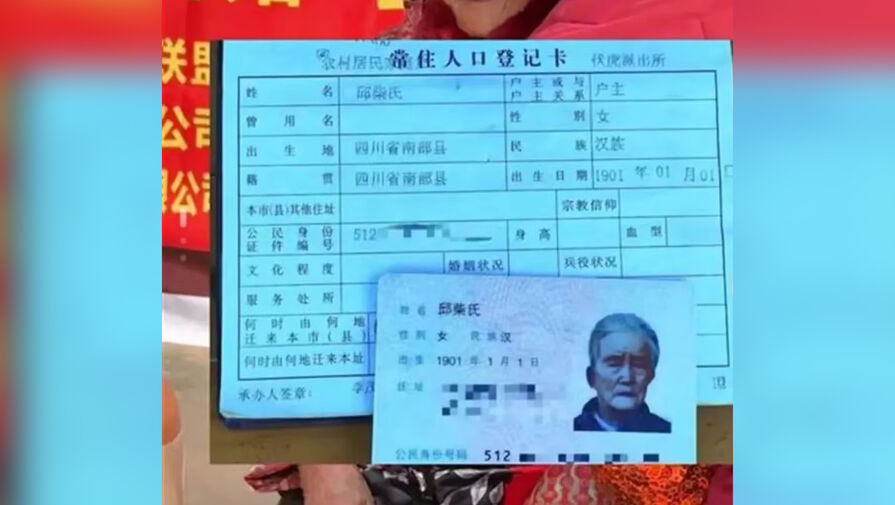 联盟
公司
公司
农村居民
常住人口登记卡
伏虎派出所
姓名 邱柴氏 户主或与户主关系 户主
曾用名 性别 女
出生地 四川省南部县 民族 汉族
籍贯 四川省南部县 出生日期 1901 年 01 月 01
本市(县)其他住址 宗教信仰
公民身份证件编号 512 身高 血型
文化程度 婚姻状况 兵役状况
服务处所
何时由何地迁来本市(县)
何时由何地迁来本址
承办人签章:
姓名 邱柴氏
性别 女 民族 汉
出生 1901 年 1 月 1 日
住址
公民身份号码 512